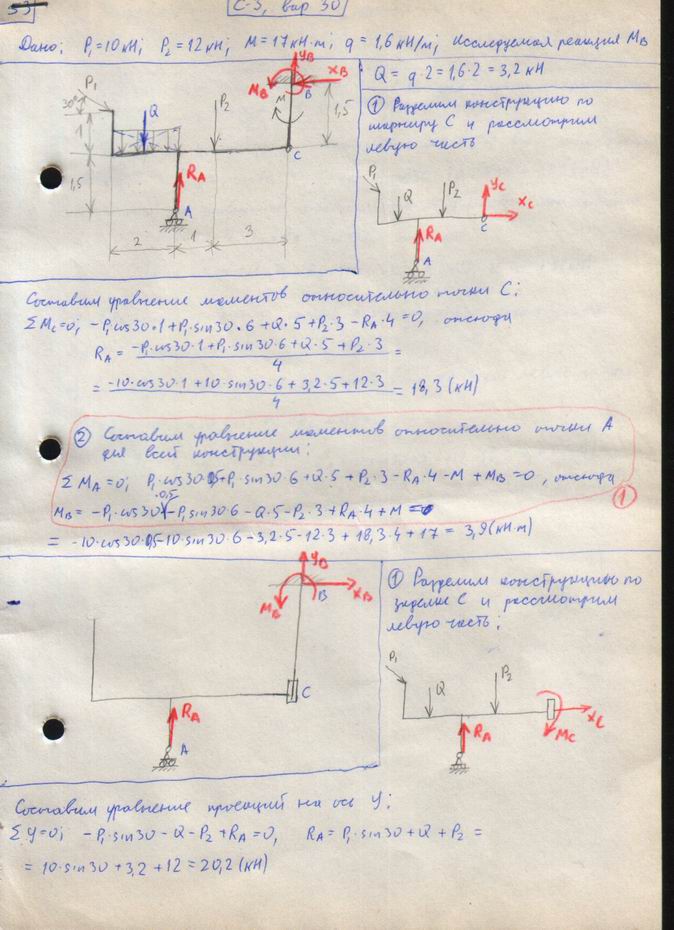 53
С-3, вар 30
Дано: P₁=10кН; P₂=12кН; M=17кН·м; q=1,6кН/м; Исследуемая реакция M_B
Q = q·2=1,6·2=3,2 кН
P₁
30°
1
1,5
Q
P₂
M_B
Y_B
X_B
B
M
1,5
C
R_A
A
2
1
3
① Разделим конструкцию по
шарниру С и рассмотрим
левую часть
P₁
Q
P₂
Y_C
X_C
C
R_A
A
Составим уравнение моментов относительно точки С:
ΣM_C=0; -P₁cos30·1+P₁sin30·6+Q·5+P₂·3-R_A·4=0, отсюда
R_A = (-P₁cos30·1+P₁sin30·6+Q·5+P₂·3)/4 =
= (-10·cos30·1+10·sin30·6+3,2·5+12·3)/4 = 18,3 (кН)
② Составим уравнение моментов относительно точки А
для всей конструкции:
ΣM_A=0; P₁·cos30·0,5+P₁·sin30·6+Q·5+P₂·3-R_A·4-M+M_B=0, отсюда
M_B= -P₁·cos30·0,5-P₁sin30·6-Q·5-P₂·3+R_A·4+M =
①
= -10·cos30·0,5-10·sin30·6-3,2·5-12·3+18,3·4+17= 3,9(кН·м)
M_B
Y_B
X_B
B
C
R_A
A
① Разделим конструкцию по
заделке С и рассмотрим
левую часть:
P₁
Q
P₂
X_C
M_C
R_A
Составим уравнение проекций на ось Y:
ΣY=0; -P₁·sin30-Q-P₂+R_A=0, R_A=P₁·sin30+Q+P₂=
=10·sin30+3,2+12=20,2(кН)